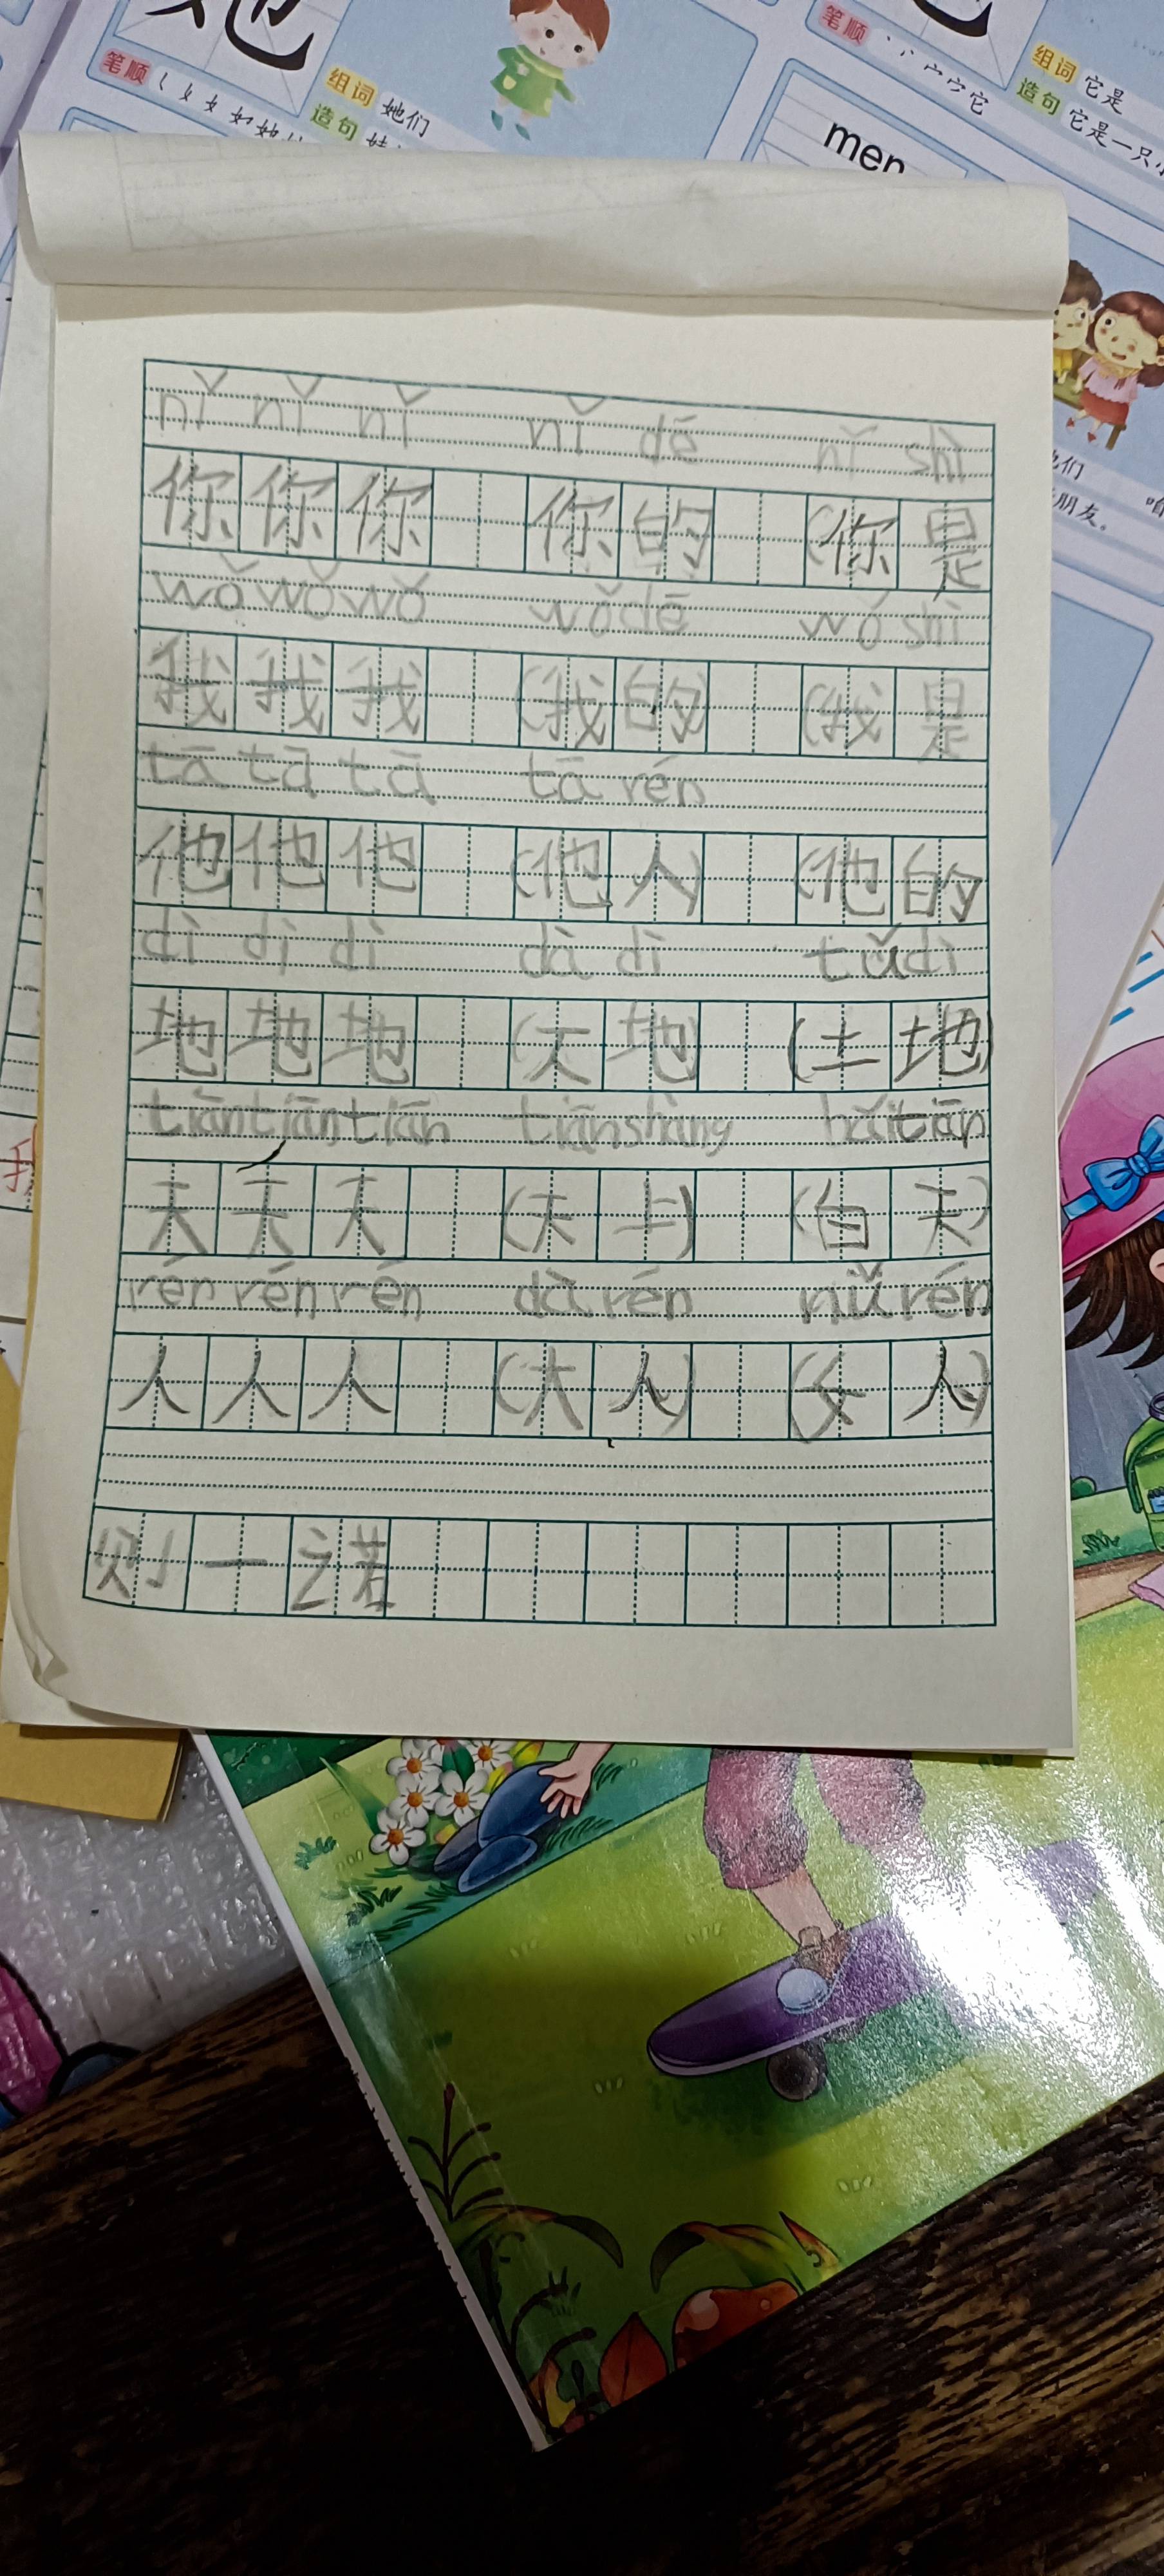 笔顺
组词 她们
造句
笔顺
组词 它是
造句 它是一只小
men
们
朋友。
nǐ nǐ nǐ nǐ dē nǐ shì
你你你 你的 (你是
wǒ wǒ wǒ wǒ dē wǒ shì
我我我 (我的) (我是
tā tā tā tā rén
他他他 (他人) (他的
dì dì dì dà dì tǔ dì
地地地 (大地) (土地)
tiān tiān tiān tiān shàng bái tiān
天天天 (天上) (白天)
rén rén rén dà rén nǚ rén
人人人 (大人) (女人)
则一之若